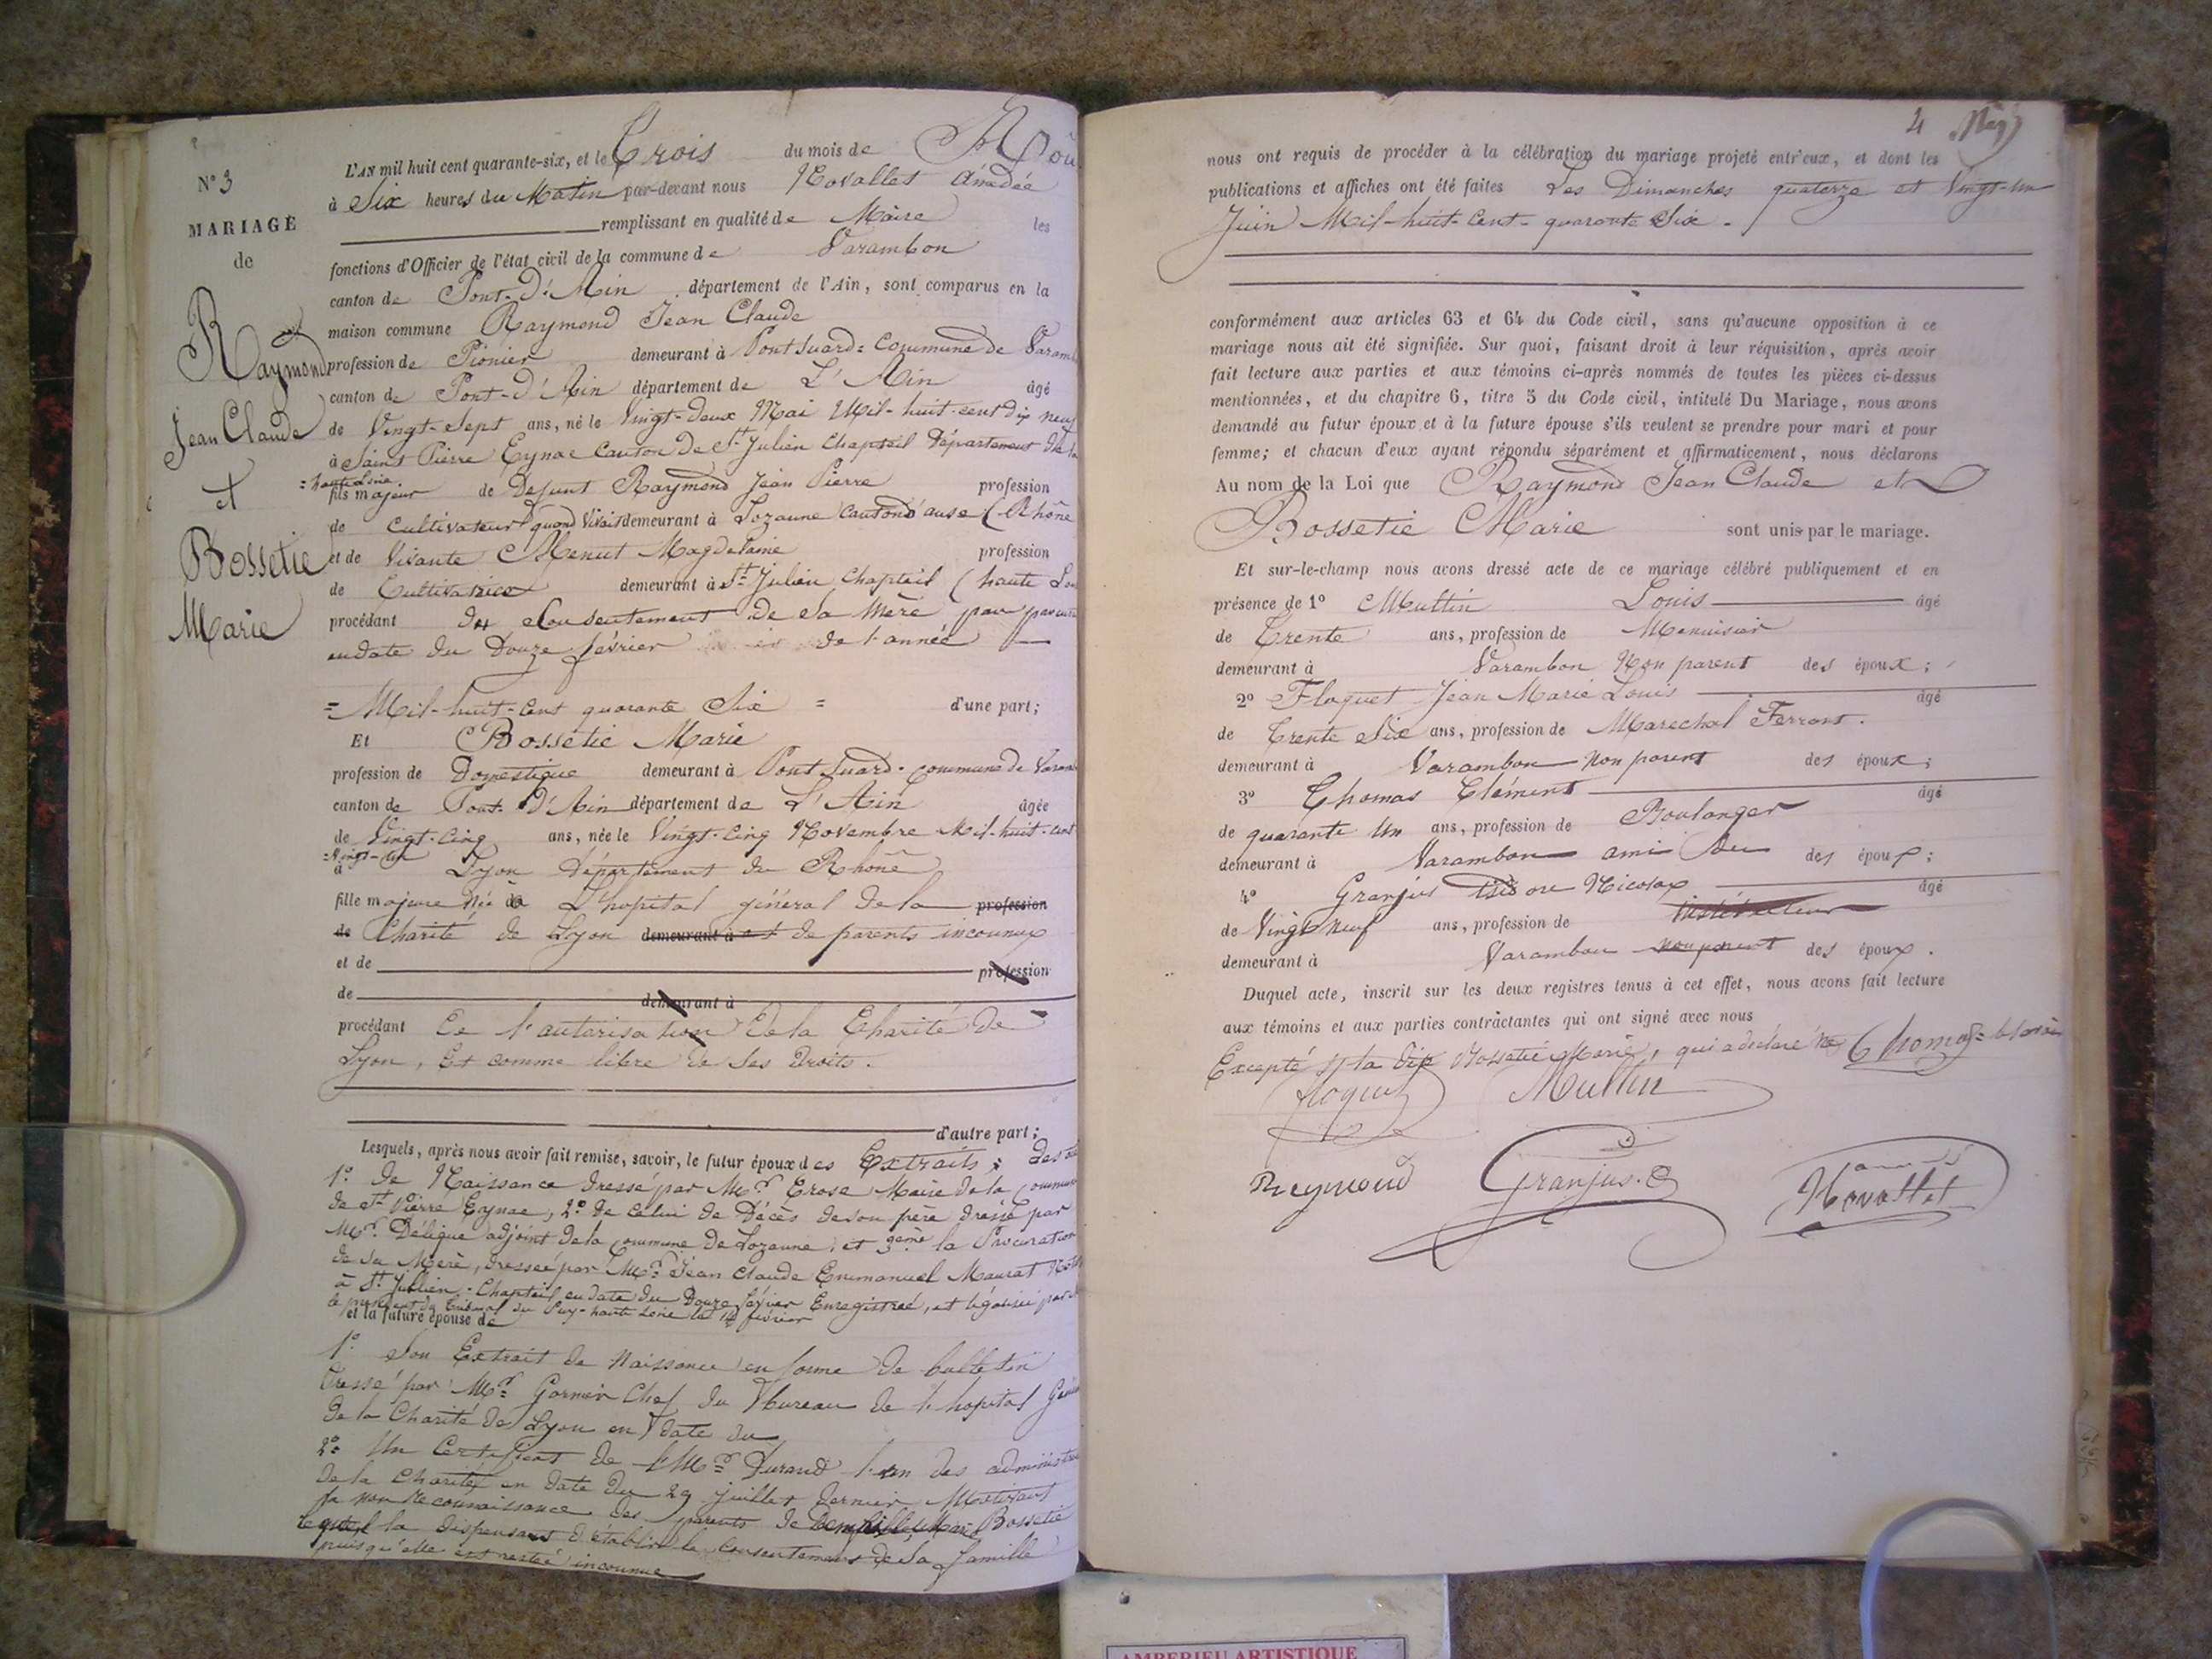 N° 3
MARIAGE
de
Raymond
Jean Claude
et
Bossetie
Marie
L'AN mil huit cent quarante-six, et le Trois du mois de Aoû
à Six heures du Matin par-devant nous Novallet Amédée
remplissant en qualité de Maire les
fonctions d'Officier de l'état civil de la commune de Varambon
canton de Pont-D'Ain département de l'Ain, sont comparus en la
maison commune Raymond Jean Claude
profession de Pionier demeurant à Pont Suard: Commune de Varam
canton de Pont-D'Ain département de L'Ain âgé
de Vingt-Sept ans, né le Vingt-deux Mai Mil-huit-cent dix neuf
à Saint Pierre Eynac Canton de St Julien Chapteil Département de la
= haute Loire
fils majeur de Defunt Raymond Jean Pierre profession
de Cultivateur quand Vivais demeurant à Lozanne Canton d'anse (Rhône
et de Vivante Menut Magdelaine profession
de Cultivatrice demeurant à St Julien Chapteil (haute Loi
procédant du Consentement de Sa Mère par procura
en date du Douze février de l'année
= Mil-huit-Cent quarante Six = d'une part;
Et Bossetie Marie
profession de Domestique demeurant à Pont Suard. Commune de Varam
canton de Pont-D'Ain département de L'Ain âgée
de Vingt-Cinq ans, née le Vingt-Cinq Novembre Mil-huit-cent
= Vingt-un
à Lyon Département du Rhône
fille majeure Née à L'hopital général de la profession
de Charité de Lyon demeurant à et de parents inconnux
et de profession
de demeurant à
procédant De l'autorisation De la Charité De
Lyon, Et comme libre de Ses Droits.
d'autre part;
Lesquels, après nous avoir fait remise, savoir, le futur époux des Extraits;
1° De Naissance dressé par Mr Erose Maire de la Commune
de St Pierre Eynac, 2° de Celui de Décès de son père dressé par
Mr Déligue adjoint de la Commune de Lozanne, et 3ème la Procuration
de Sa Mère, dressée par Mr Jean Claude Emmanuel Maurat
à St Julien-Chapteil, en date du Douze février Enregistreé, et légalisée par
le president du Tribunal du Puy-haute Loire le février
et la future épouse de
1° Son Extrait de Naissance en forme de bulletin
Dressé par Mr Garnier Chef du Bureau de l'hopital
de la Charité de Lyon en date du
2° Un Certificat de Mr Durand l'un des administra
de la Charité en date du 29 juillet dernier
la non Reconnaissance des parents de Marie Bossetie
la dispensant d'établir le Consentement de Sa famille
puisqu'elle est restée inconnue
4
nous ont requis de procéder à la célébration du mariage projeté entr'eux, et dont les
publications et affiches ont été faites Les Dimanches quatorze et Vingt-Un
Juin Mil-huit-Cent-quarante Six.
conformément aux articles 63 et 64 du Code civil, sans qu'aucune opposition à ce
mariage nous ait été signifiée. Sur quoi, faisant droit à leur réquisition, après avoir
fait lecture aux parties et aux témoins ci-après nommés de toutes les pièces ci-dessus
mentionnées, et du chapitre 6, titre 5 du Code civil, intitulé Du Mariage, nous avons
demandé au futur époux et à la future épouse s'ils veulent se prendre pour mari et pour
femme; et chacun d'eux ayant répondu séparément et affirmativement, nous déclarons
Au nom de la Loi que Raymond Jean Claude et
Bossetie Marie sont unis par le mariage.
Et sur-le-champ nous avons dressé acte de ce mariage célébré publiquement et en
présence de 1° Muttin Louis âgé
de Trente ans, profession de Menuisier
demeurant à Varambon Non parent des époux;
2° Floquet Jean Marie Louis âgé
de Trente Six ans, profession de Marechal Ferrant.
demeurant à Varambon non parent des époux;
3° Thomas Clément âgé
de quarante Un ans, profession de Boulanger
demeurant à Varambon ami des époux;
4° Granjus Isidore Nicolas âgé
de Vingt neuf ans, profession de Instituteur
demeurant à Varambon non parent des époux.
Duquel acte, inscrit sur les deux registres tenus à cet effet, nous avons fait lecture
aux témoins et aux parties contractantes qui ont signé avec nous
Excepté la dite Bossetié Marie, qui a déclaré ne Thomas le savoir
floquet Muttin
Reymond Granjus Novallet
AMBERIEU ARTISTIQUE